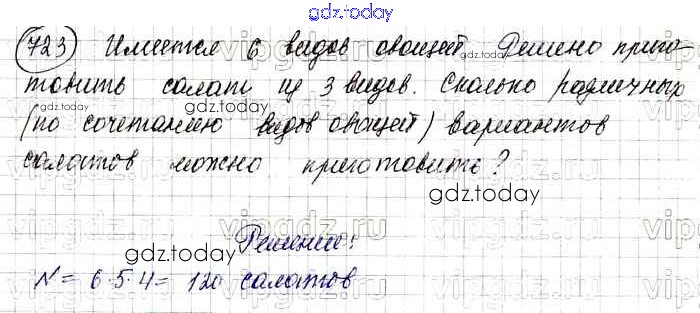 gdz.today
723 Имеется 6 видов овощей. Решено приго-
товить салат из 3 видов. Сколько различных
gdz.today
(по сочетанию видов овощей) вариантов
салатов можно приготовить?
gdz.today
Решение:
gdz.today
N = 6·5·4 = 120 салатов